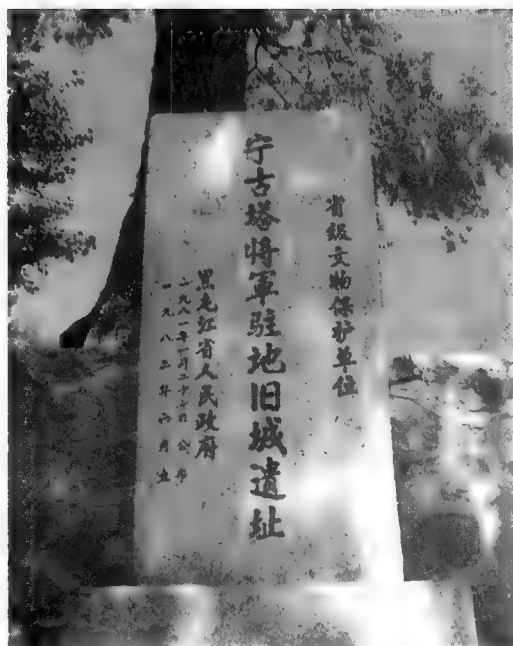 省级文物保护单位
宁古塔将軍駐地旧城遺址
黑龙江省人民政府
一九八一年一月二十七日 公布
一九八三年 月立